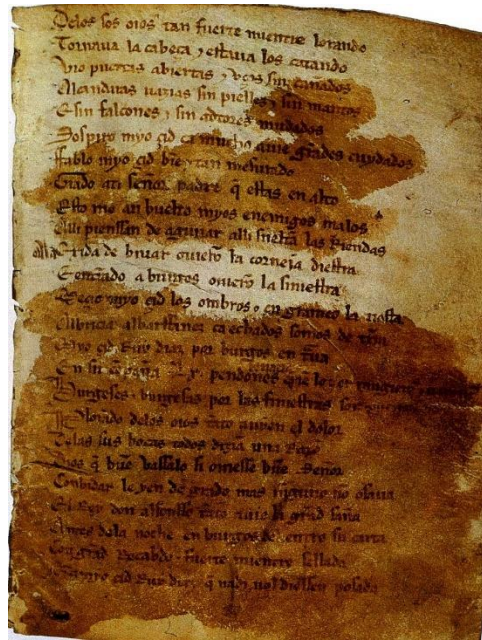 Delos sos oios tan fuerte mientre lorando
Tornaua la cabeça ⁊ estaua los catando
Vio puertas abiertas ⁊ vços sin cañados
Alcandaras uazias sin pielles ⁊ sin mantos
E sin falcones ⁊ sin adtores mudados
Sospiro myo çid ca mucho auie grãdes cuydados
Ffablo myo çid bien ⁊ tan mesurado
Grado ati señor padre q̃ estas en alto
Esto me an buelto myos enemigos malos
Alli pienssan de aguiiar alli sueltã las Riendas
Ala Exida de biuar ouierõ la corneia diestra
E entrãdo a burgos ouierõ la siniestra
Meçio myo çid los ombros ⁊ engrameo la tiesta
Albricia albarffanez ca echados somos de tierra
Myo çid Ruy diaz por burgos en traua
En su conpaña Lx pendones
Burgeses ⁊ burgesas por las finiestras son
Plorando delos oios tãto auyen el dolor
Delas sus bocas todos dizian una Razõ
Dios q̃ buẽ vassalo si ouiesse buẽ Señor
Conbidar le yen de grado mas ninguno no osaua
El Rey don alfonsso tãto auie la grãd saña
Antes dela noche en burgos del entro su carta
Con grãd Recabdo ⁊ fuerte mientre sellada
Que a myo çid Ruy diaz q̃ nadi nol diessen posada